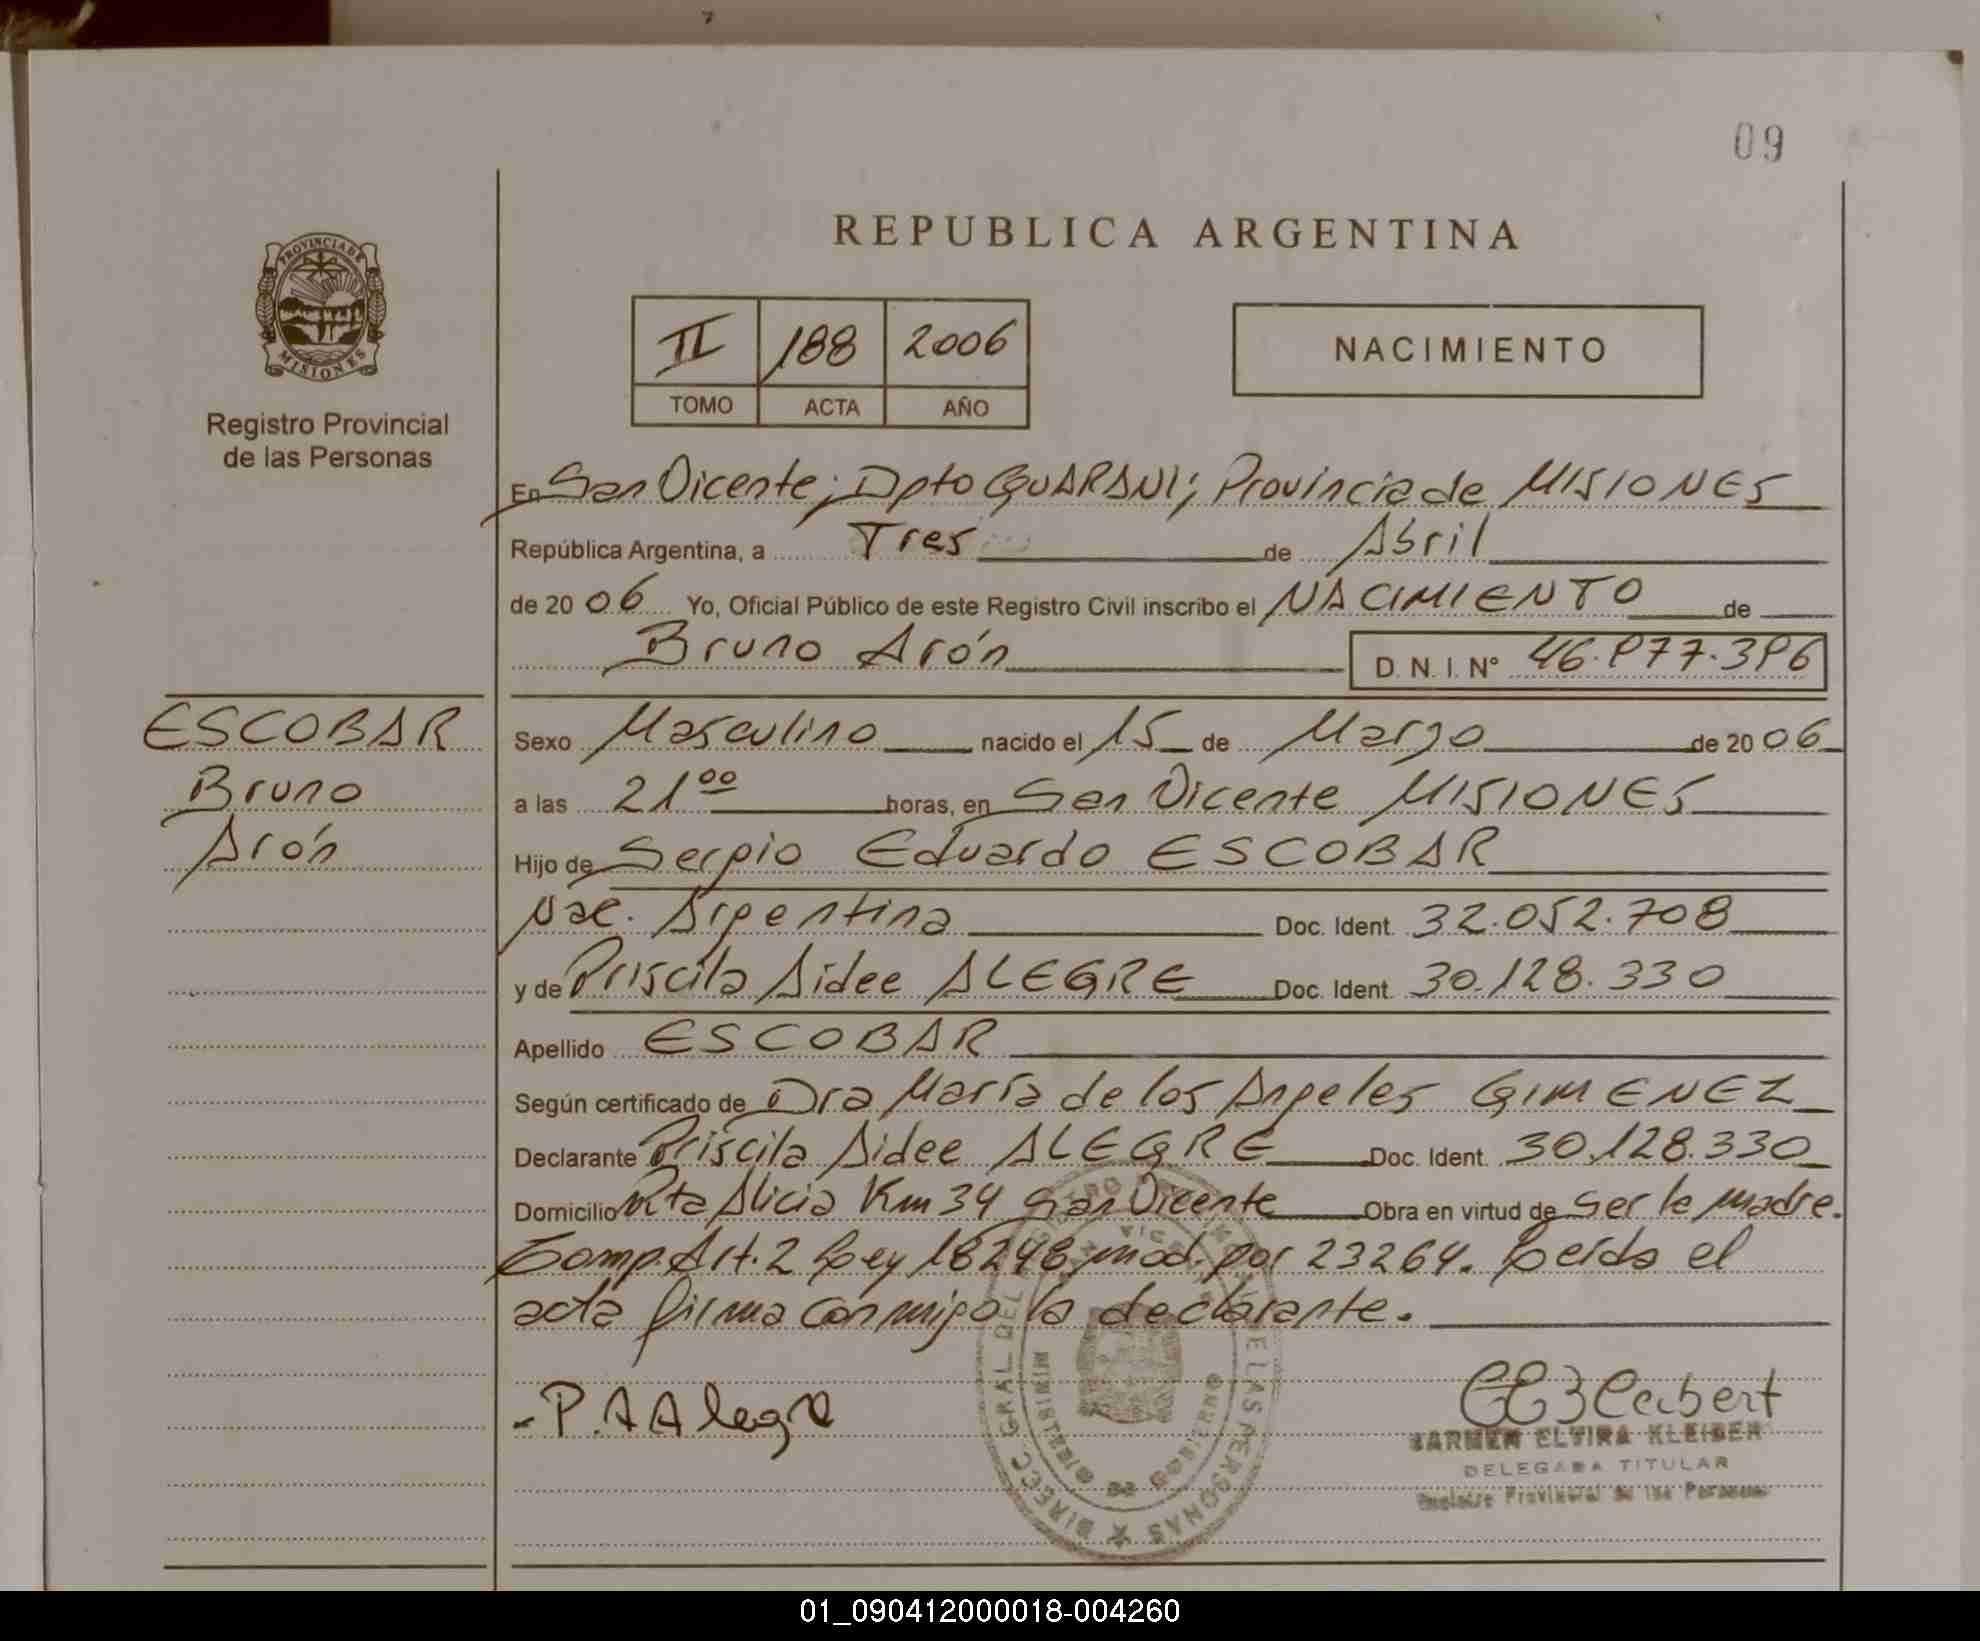 09
REPUBLICA ARGENTINA
PROVINCIA DE
MISIONES
Registro Provincial
de las Personas
II 188 2006
TOMO ACTA AÑO
NACIMIENTO
En San Vicente; Dpto GUARANI; Provincia de MISIONES
República Argentina, a Tres de Abril
de 20 06 Yo, Oficial Público de este Registro Civil inscribo el NACIMIENTO de
Bruno Arón D. N. I. N° 46.977.396
ESCOBAR
Bruno
Arón
Sexo Masculino nacido el 15 de Marzo de 20 06
a las 21 00 horas, en San Vicente MISIONES
Hijo de Sergio Eduardo ESCOBAR
Nac. Argentina Doc. Ident. 32.052.708
y de Priscila Aidee ALEGRE Doc. Ident. 30.128.330
Apellido ESCOBAR
Según certificado de Dra María de los Angeles GIMENEZ
Declarante Priscila Aidee ALEGRE Doc. Ident. 30.128.330
Domicilio Pta Alicia Km 34 San Vicente Obra en virtud de ser la madre.
Comp. Art. 2 Ley 18248 mod. por 23264. Leída el
acta firma conmigo la declarante.
P. A Alegre
CARMEN ELVIRA KLEIBER
DELEGADA TITULAR
Provincial de las Personas
01_090412000018-004260